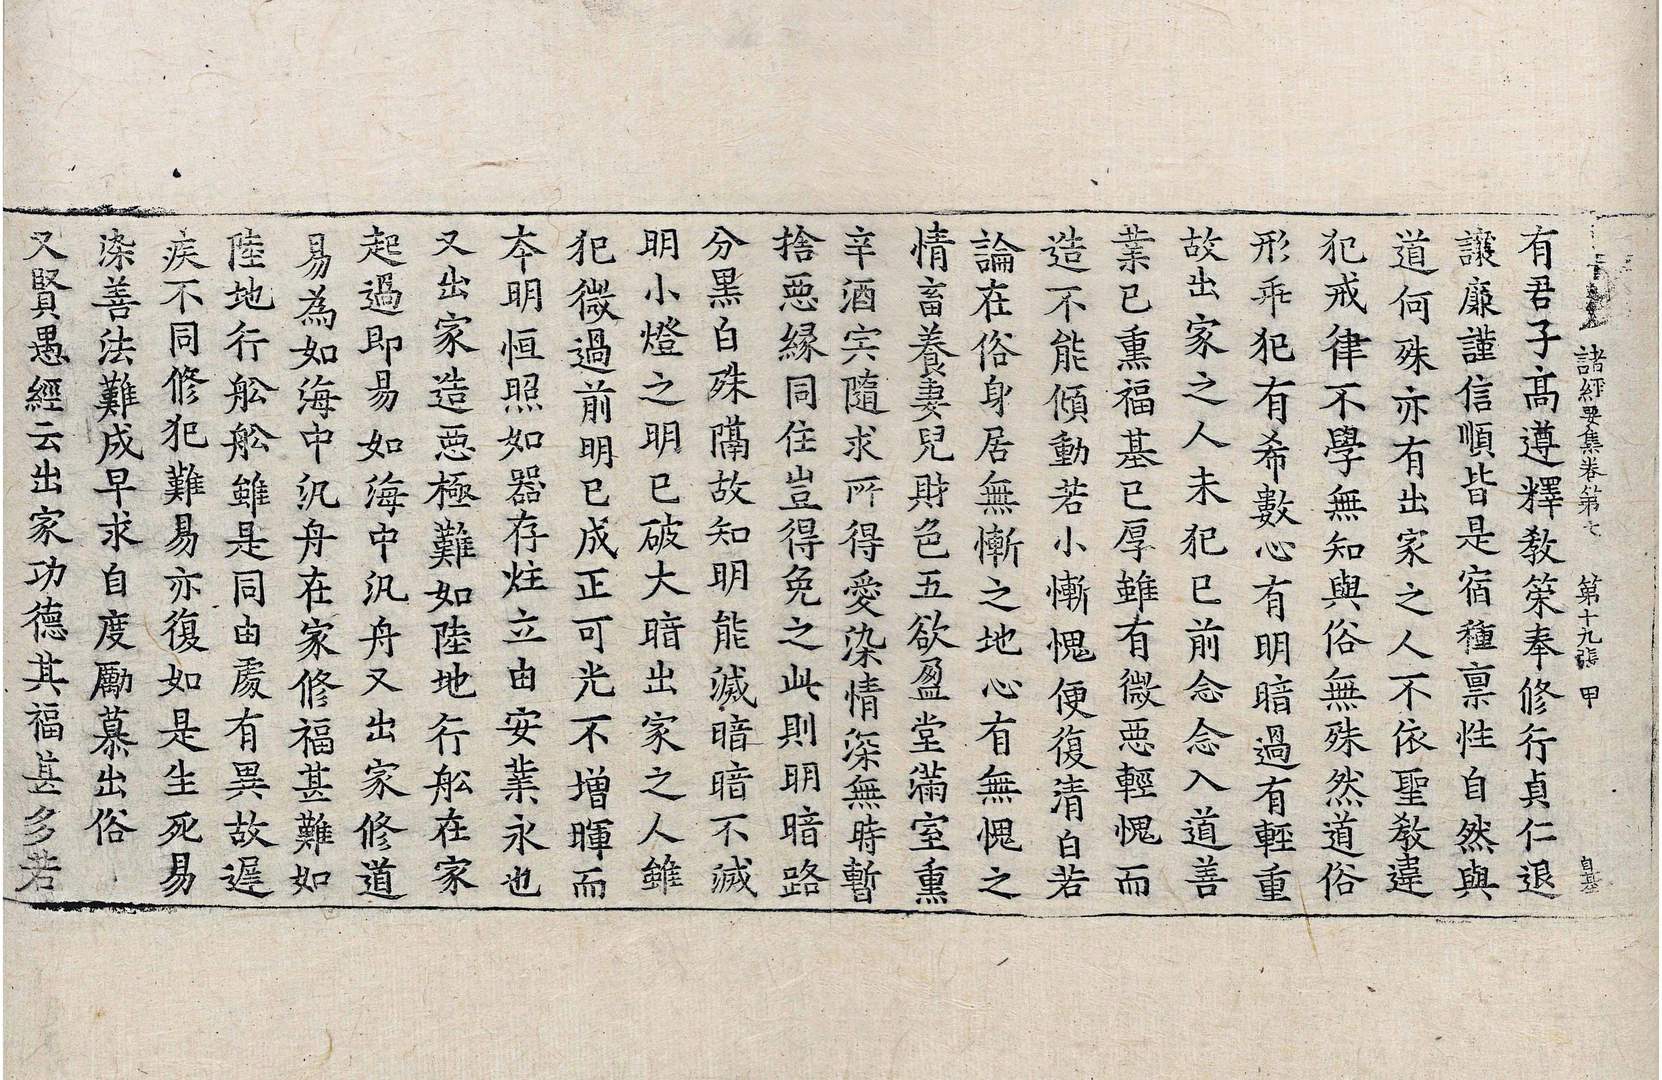 諸經要集卷第七 第十九張 甲
有君子高遵釋教策奉修行貞仁退
讓廉謹信順皆是宿種稟性自然與
道何殊亦有出家之人不依聖教違
犯戒律不學無知與俗無殊然道俗
形乖犯有希數心有明暗過有輕重
故出家之人未犯已前念念入道善
業已熏福基已厚雖有微惡輕愧而
造不能傾動若小慚愧便復清白若
論在俗身居無慚之地心有無愧之
情畜養妻兒財色五欲盈堂滿室熏
辛酒宍隨求所得愛染情深無時暫
捨惡緣同住豈得免之此則明暗路
分黑白殊隔故知明能滅暗暗不滅
明小燈之明已破大暗出家之人雖
犯微過前明已成正可光不增暉而
本明恒照如器存炷立由安業永也
又出家造惡極難如陸地行舩在家
起過即易如海中汎舟又出家修道
易為如海中汎舟在家修福甚難如
陸地行舩舩雖是同由處有異故遲
疾不同修犯難易亦復如是生死易
染善法難成早求自度勵慕出俗
又賢愚經云出家功德其福甚多若